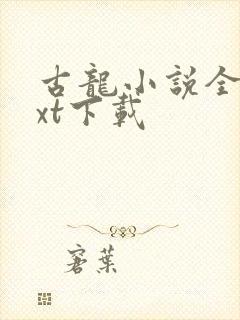 古龍小説全
xt下載
窨葉